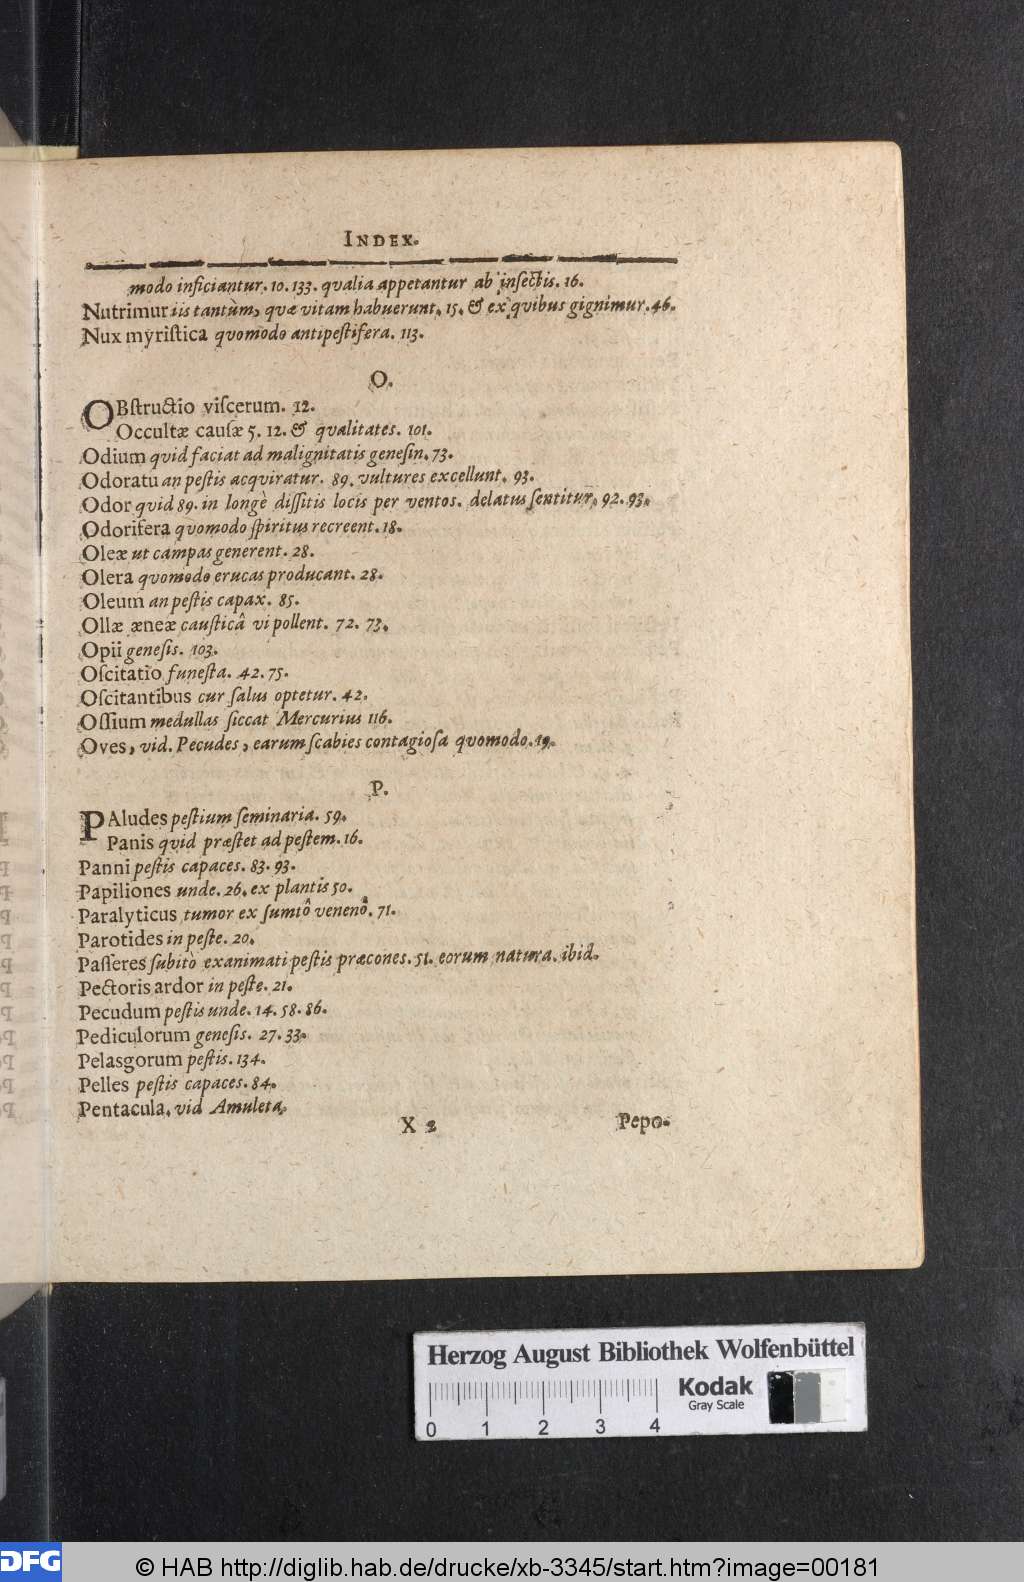 INDEX.
modo inficiantur. 10. 133. qvalia appetantur ab insectis. 16.
Nutrimur iis tantùm, qvæ vitam habuerunt. 15. & ex qvibus gignimur. 46.
Nux myristica qvomodo antipestifera. 113.
O.
OBstructio viscerum. 12.
Occultæ causæ 5. 12. & qvalitates. 101.
Odium qvid faciat ad malignitatis genesin. 73.
Odoratu an pestis acqviratur. 89. vultures excellunt. 93.
Odor qvid 89. in longè dissitis locis per ventos. delatus sentitur. 92. 93.
Odorifera qvomodo spiritus recreent. 18.
Oleæ ut campas generent. 28.
Olera qvomodo erucas producant. 28.
Oleum an pestis capax. 85.
Ollæ æneæ causticâ vi pollent. 72. 73.
Opii genesis. 103.
Oscitatio funesta. 42. 75.
Oscitantibus cur salus optetur. 42.
Ossium medullas siccat Mercurius 116.
Oves, vid. Pecudes, earum scabies contagiosa qvomodo. 19.
P.
PAludes pestium seminaria. 59.
Panis qvid præstet ad pestem. 16.
Panni pestis capaces. 83. 93.
Papiliones unde. 26. ex plantis 50.
Paralyticus tumor ex sumtô venenô. 71.
Parotides in peste. 20.
Passeres subitò exanimati pestis præcones. 51. eorum natura. ibid.
Pectoris ardor in peste. 21.
Pecudum pestis unde. 14. 58. 86.
Pediculorum genesis. 27. 33.
Pelasgorum pestis. 134.
Pelles pestis capaces. 84.
Pentacula. vid Amuleta.
X 2 Pepo.
Herzog August Bibliothek Wolfenbüttel
Kodak
Gray Scale
0 1 2 3 4
DFG © HAB http://diglib.hab.de/drucke/xb-3345/start.htm?image=00181